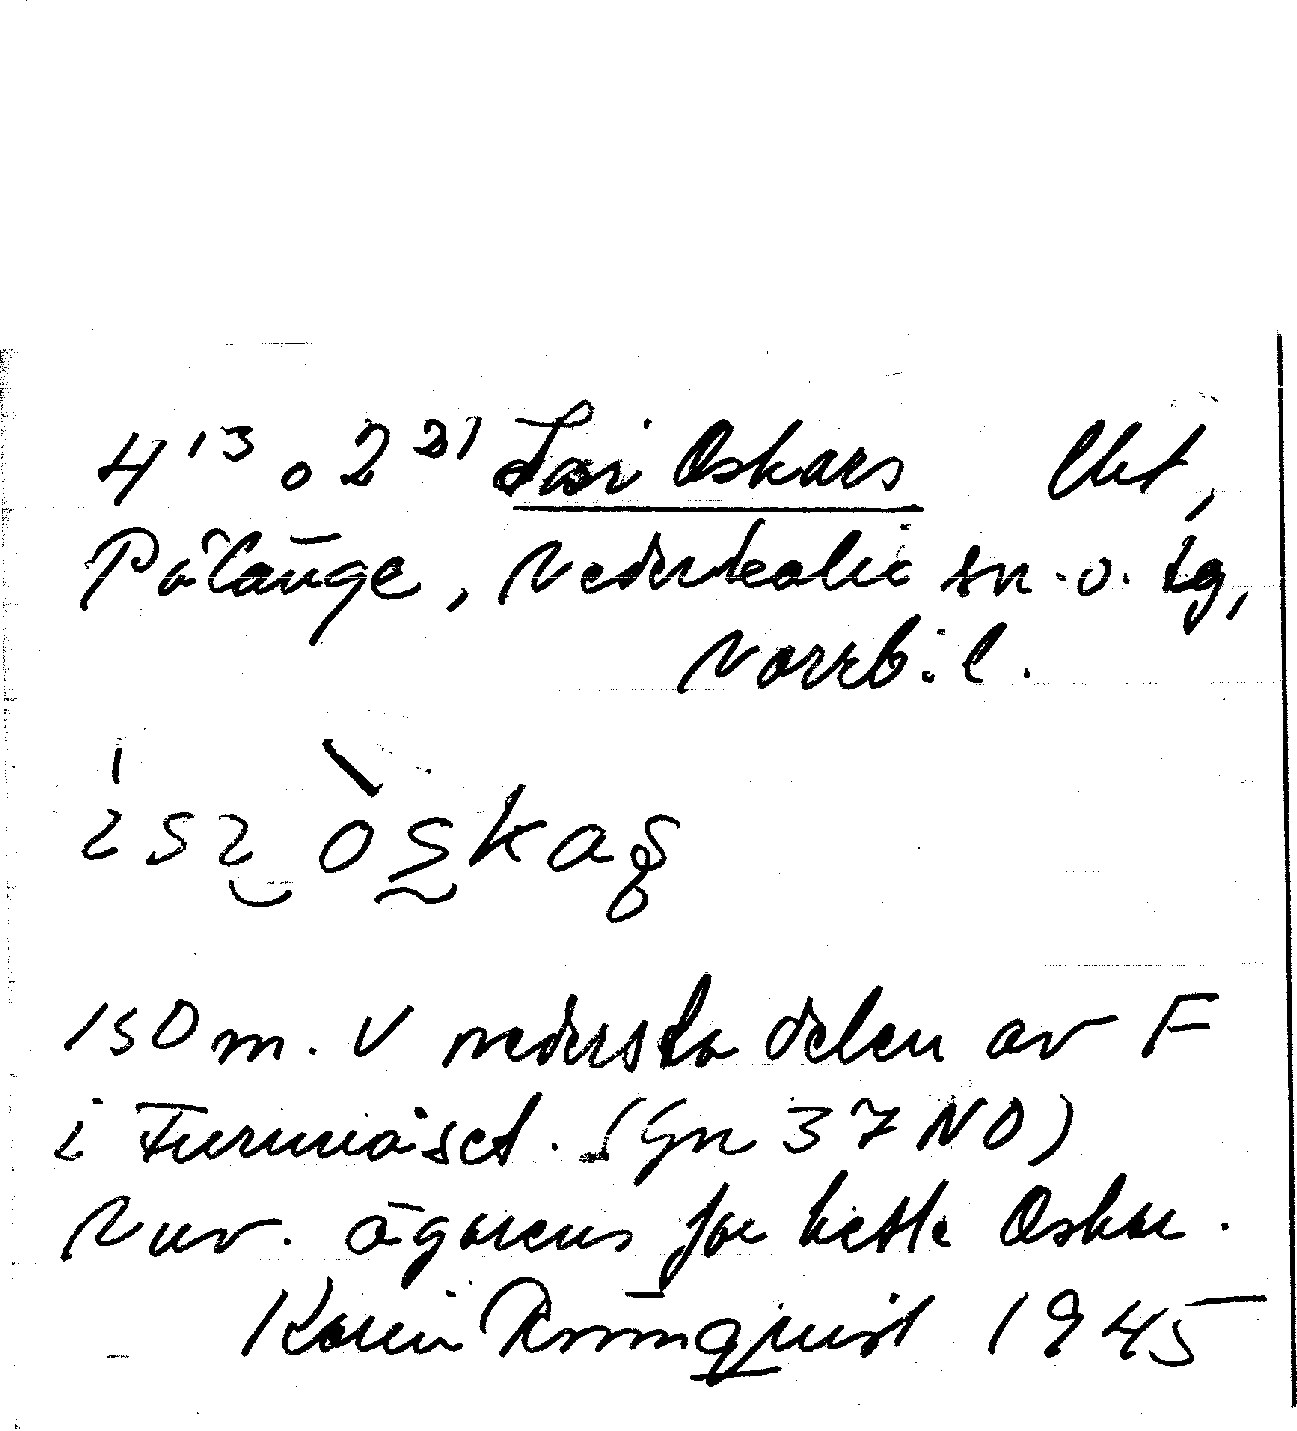 4¹³ o 2²¹ Isi Oskars lht,
Pålänge, Nederkalix sn. o. tg,
Norrb. l.
150 m. V nedersta delen av F
i Furunäset. (Gn 37 NO)
Nuv. ägarens far hette Oskar.
Karin Rönnquist 1945